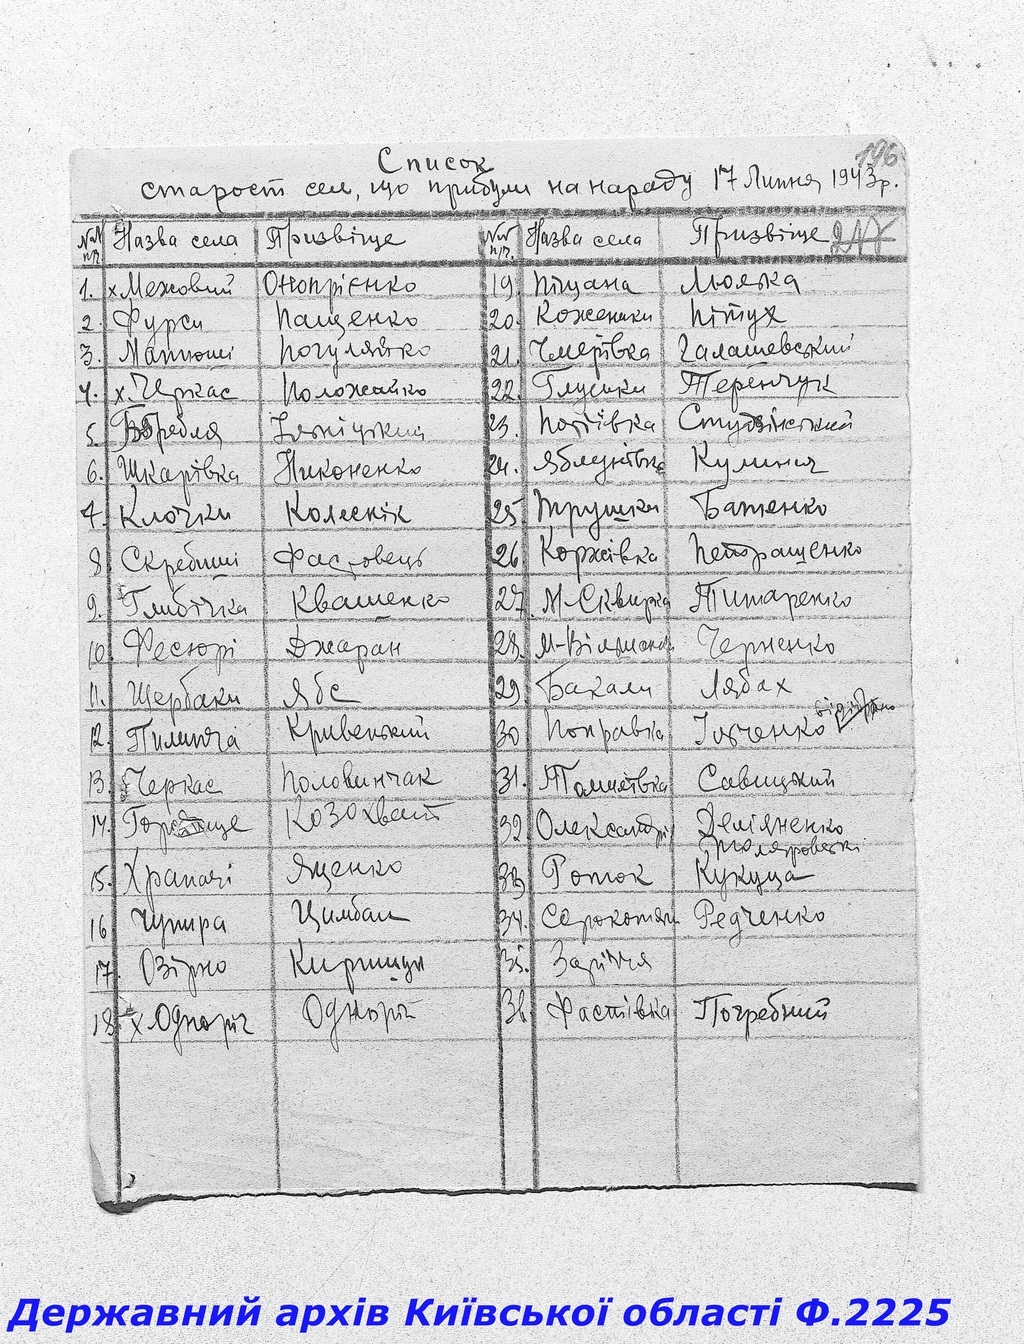 196
Список
старост сел, що прибули на нараду 17 Липня 1943 р.
№№ п/п. Назва села Призвіще №№ п/п. Назва села Призвіще 217
1. х. Межовий Онопрієнко 19. Піщана Люлька
2. Фурси Пащенко 20. Коженики Пітух
3. Матюші Погуляйко 21. Чмерівка Галашевський
4. х. Черкас Положайко 22. Глушки Теренчук
5. Гребля 23. Потіївка Студзінський
6. Шкарівка Никоненко 24. Яблунівка Кулинич
7. Клочки Колеснік 25. Трушки Батенко
8 Скребиші Фастовець 26 Коржівка Петращенко
9. Глибічка Квашенко 27. М-Сквирка Титаренко
10. Фесюрі Джаран 28. М-Вільшанка Черненко
11. Щербаки Ябс 29. Бакали Лябах
12. Пилипча Кривенький 30 Поправка Ільченко
13. Черкас Половинчак 31. Томилівка Савицький
14. Козохват 32 Олександрі Деміяненко
Столяровські
15. Храпачі Яценко 33. Роток Кукуца
16 Чупира Цимбал 34. Сорокотяги Редченко
17. Озірно Кирищук 35. Заріччя
18. х. Одноріг Одноріг 36. Фастівка Погребний
Державний архів Київської області Ф.2225